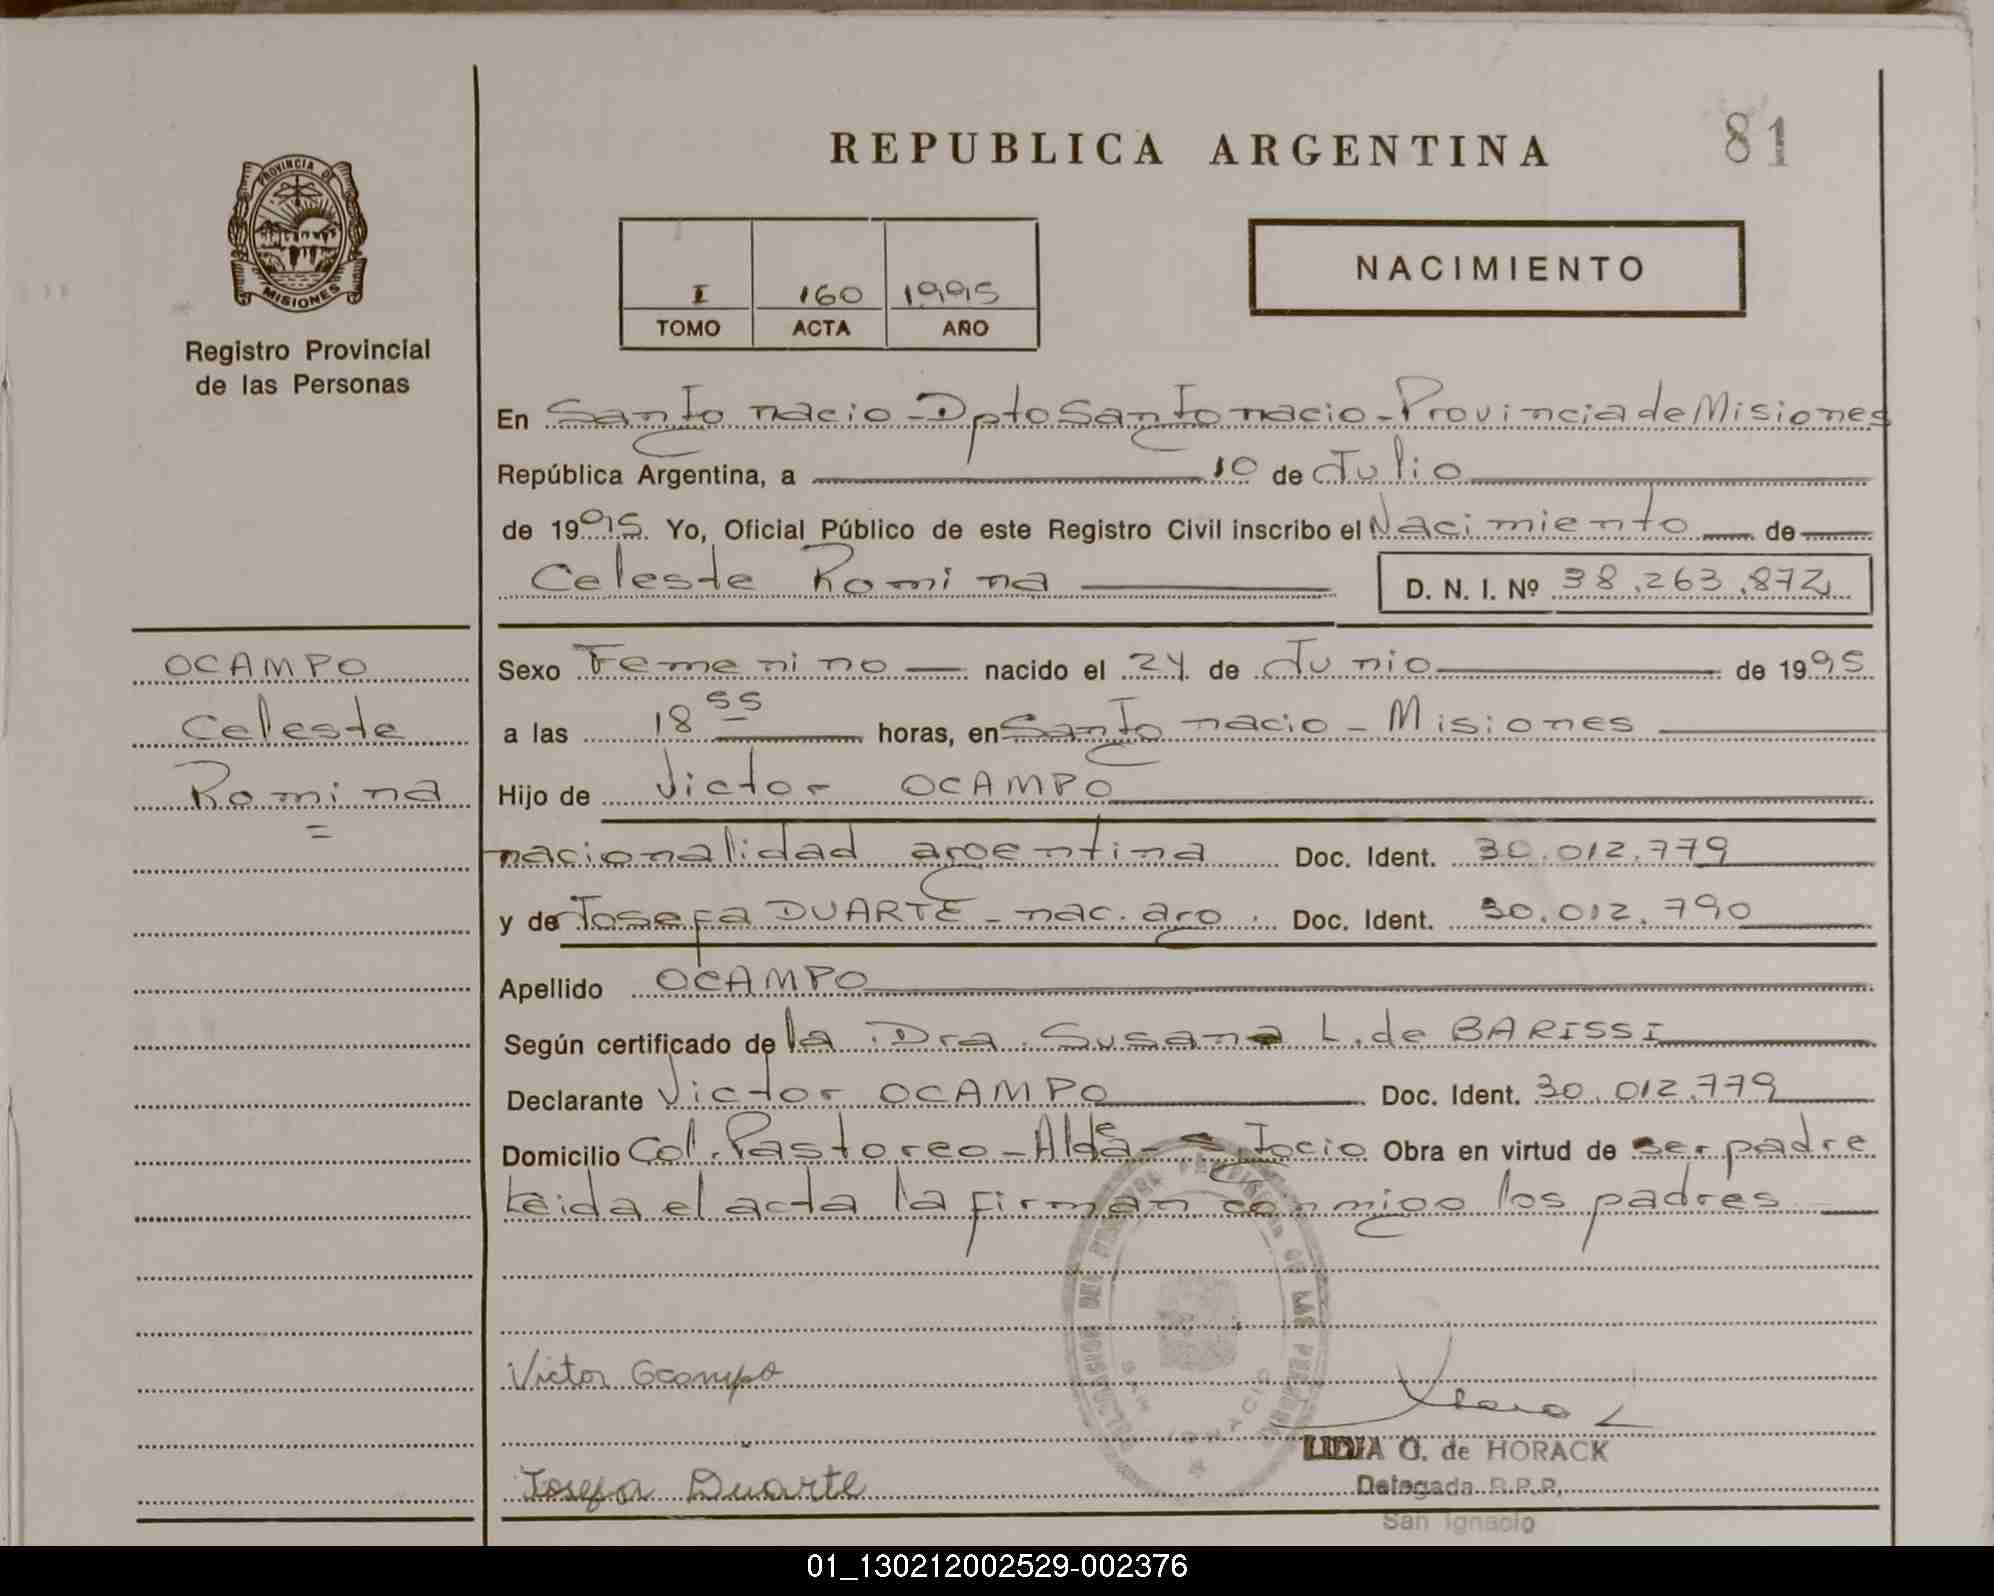 REPUBLICA ARGENTINA
81
PROVINCIA DE
MISIONES
Registro Provincial
de las Personas
NACIMIENTO
I 160 1995
TOMO ACTA AÑO
En San Ignacio - Dpto San Ignacio - Provincia de Misiones
República Argentina, a 10 de Julio
de 1995. Yo, Oficial Público de este Registro Civil inscribo el Nacimiento de
Celeste Romina D. N. I. Nº 38.263.872
OCAMPO
Celeste
Romina
Sexo Femenino nacido el 24 de Junio de 1995
a las 18 55 horas, en San Ignacio - Misiones
Hijo de Victor OCAMPO
nacionalidad argentina Doc. Ident. 30.012.779
y de Josefa DUARTE - nac. arg. Doc. Ident. 30.012.790
Apellido OCAMPO
Según certificado de la Dra. Susana L. de BARISSI
Declarante Victor OCAMPO Doc. Ident. 30.012.779
Domicilio Col. Pastoreo - Obra en virtud de ser padre
Leida el acta la firman conmigo los padres
Victor Ocampo
Josefa Duarte
SAN IGNACIO
LIDIA O. de HORACK
Delegada R.P.P.
San Ignacio
01_130212002529-002376